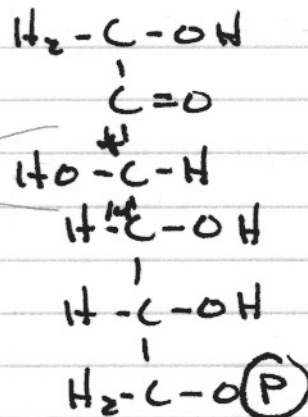 H₂-C-OH
C=O
HO-C-H
H-C-OH
H-C-OH
H₂-C-O(P)